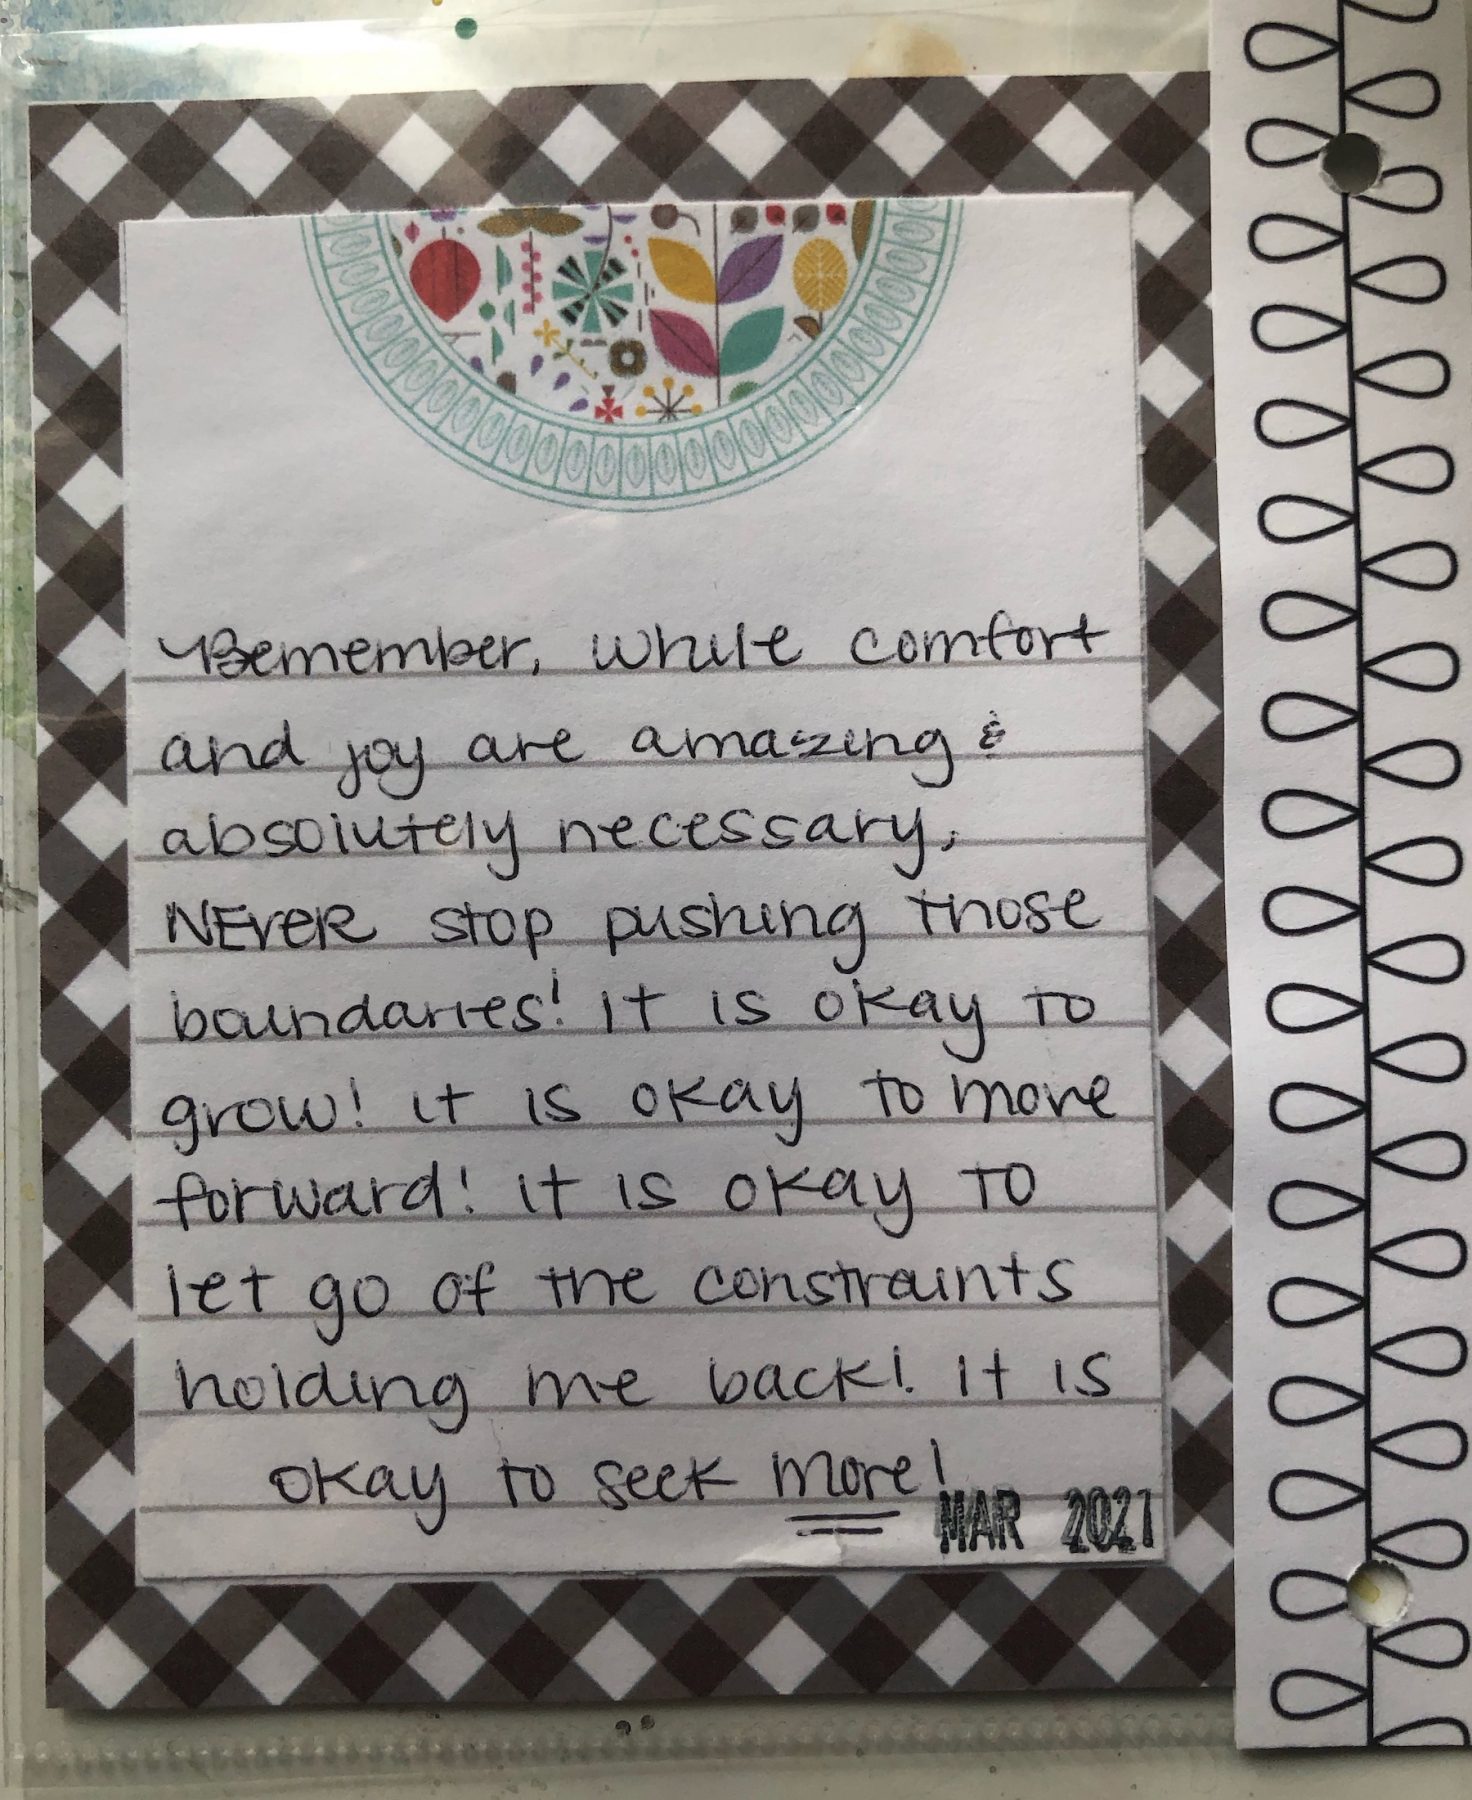 Remember, while comfort
and joy are amazing &
absolutely necessary,
NEVER stop pushing those
boundaries! it is okay to
grow! it is okay to move
forward! it is okay to
let go of the constraints
holding me back! it is
okay to seek more!
MAR 2021